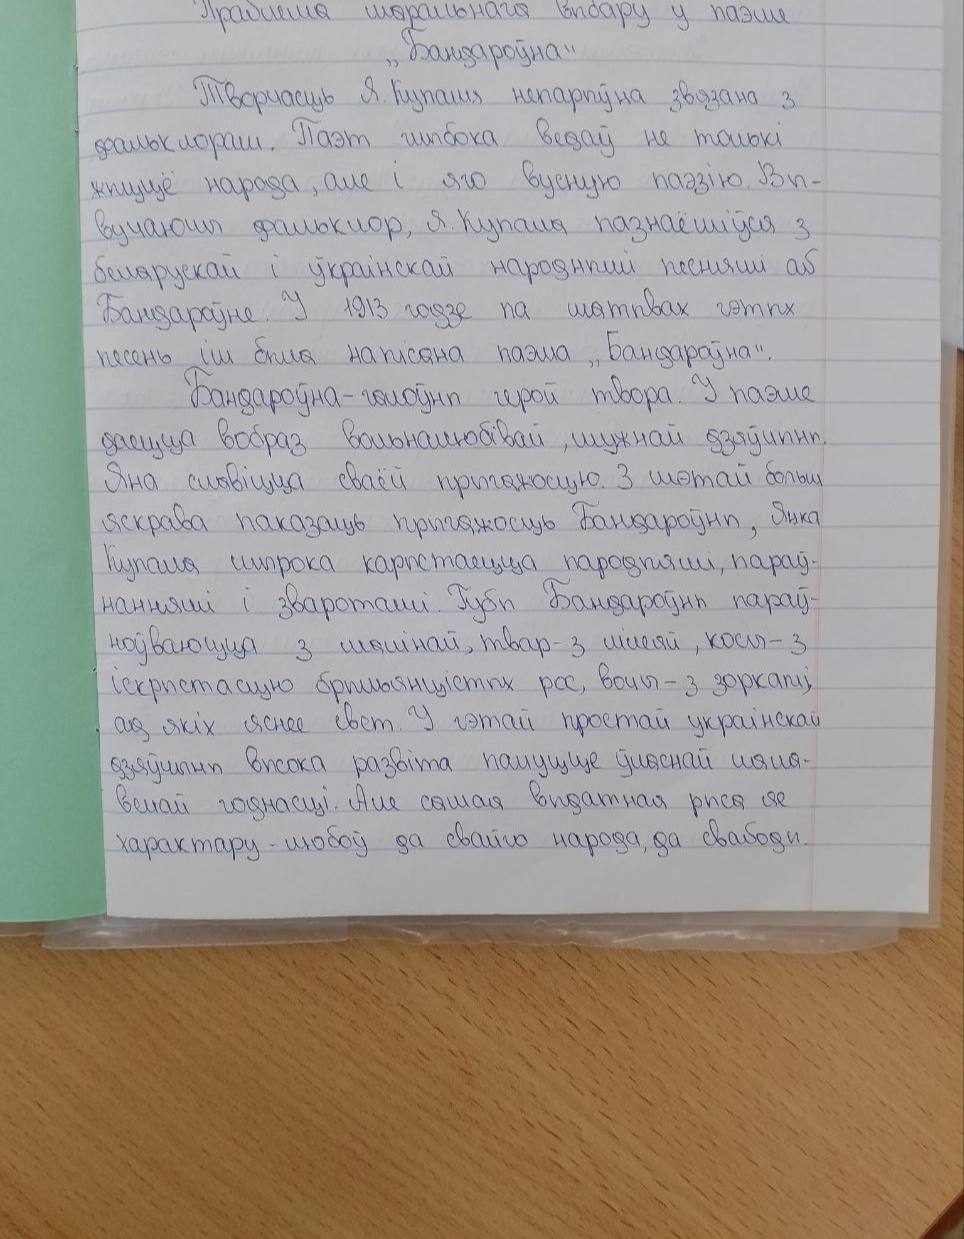 Праблема маральнага выбару у паэме
„Бандароўна“
Творчасць Я.Купалы непарыўна звязана з
фальклорам. Паэт глыбока ведаў не толькі
жыццё народа, але і яго вусную паэзію. Вы-
вучаючы фальклор, Я.Купала пазнаёміўся з
беларускай і ўкраінскай народнымі песнямі аб
Бандароўне. У 1913 годзе па матывах гэтых
песень ім была напісана паэма „Бандароўна“.
Бандароўна-галоўны герой твора. У паэме
даецца вобраз вольналюбівай, мужнай дзяўчыны.
Яна славіцца сваёй прыгажосцю. З мэтай больш
яскрава паказаць прыгажосць Бандароўны, Янка
Купала шырока карыстаецца пародыямі, параў-
наннямі і зваротамі. Губы Бандароўны параў-
ноўваюцца з малінай, твар-з лілеяй, косы-з
іскрыстасцю брыльянцістых рос, вочы-з зоркамі,
ад якіх яснее свет. У гэтай простай украінскай
дзяўчыны высока развіта пачуцце ўласнай чала-
вечай годнасці. Але самая выдатная рыса яе
характару-любоў да свайго народа, да свабоды.